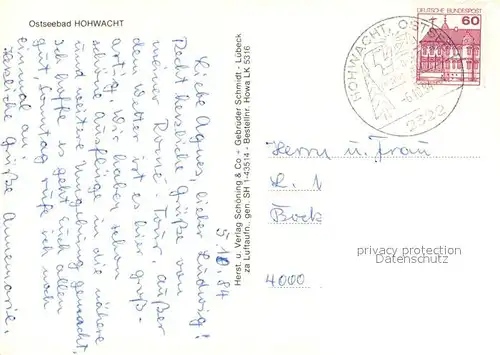 Ostseebad HOHWACHT
5.10.84
Liebe Agnes, lieber Ludwig!
Recht herzliche Grüße von
meiner Tour, außer
dem Wetter ist es hier groß-
artig. Wir haben schon
schöne Ausflüge in die nähere
und weitere Umgebung gemacht.
Ich hoffe es geht Euch allen
gut, Sonntag rufe ich noch
einmal an
Herzliche Grüße Annemarie.
Herst. u. Verlag Schöning & Co · Gebrüder Schmidt - Lübeck
za Luftaufn., gen. SH 1-43514 - Bestellnr. Howa LK 5316
HOHWACHT, OSTSEE
2322
DEUTSCHE BUNDESPOST
60
Herrn u. Frau
L. 1
Bock
4000
privacy protection
Datenschutz